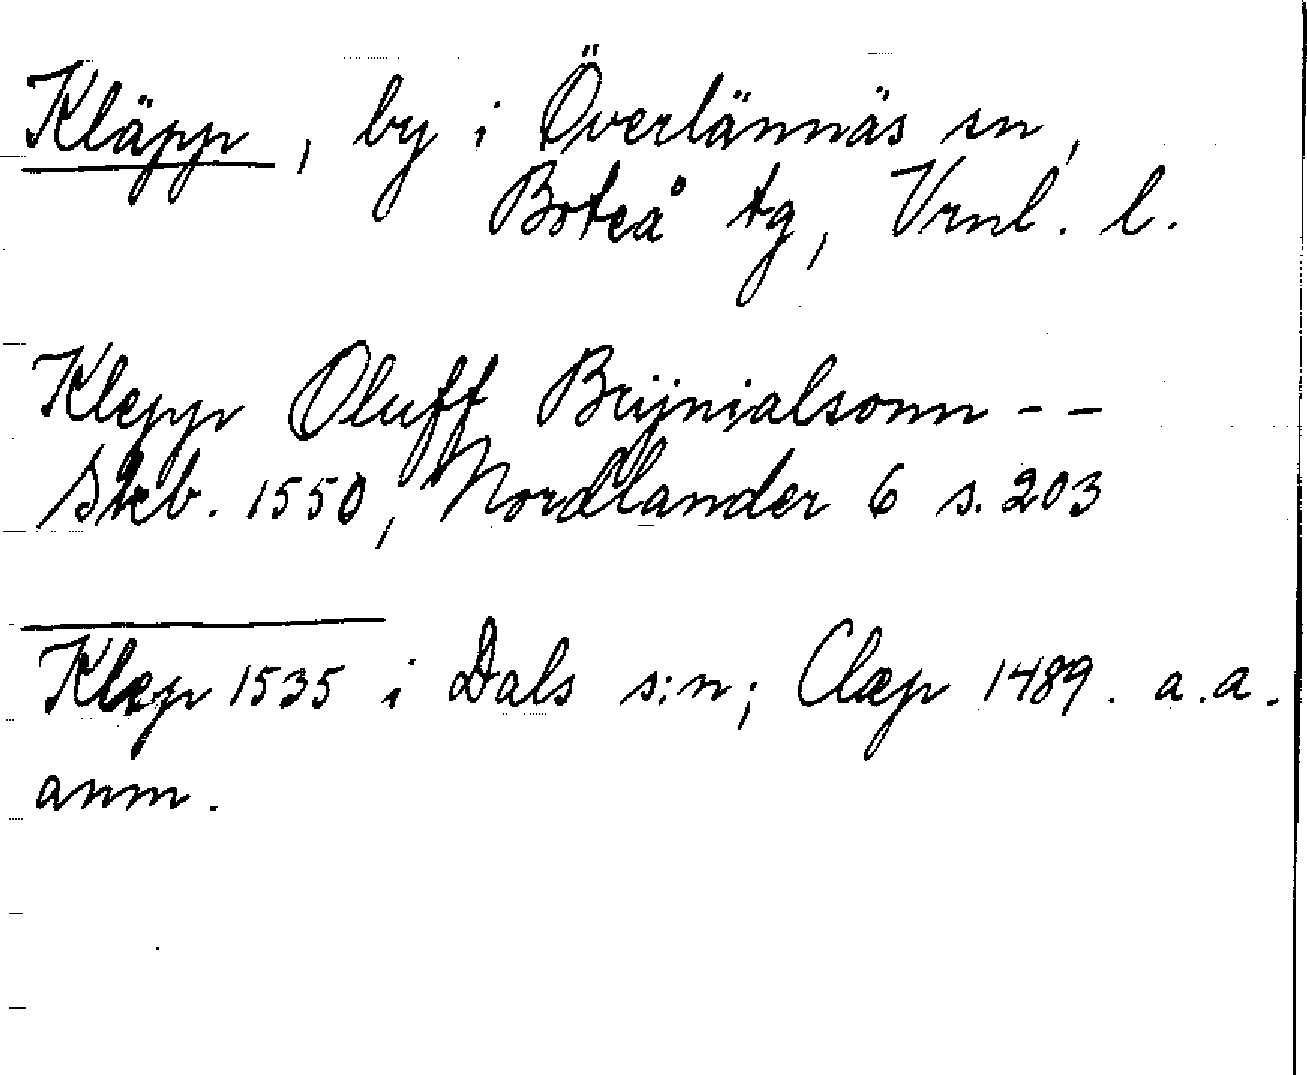 Kläpp, by i Överlännäs sn,
Boteå tg, Vrnl. l.
Klepp Oluff Brijnialsonn - -
Skb. 1550, Nordlander 6 s. 203
Klæp 1535 i Dals s:n; Clæp 1489. a.a.
anm.